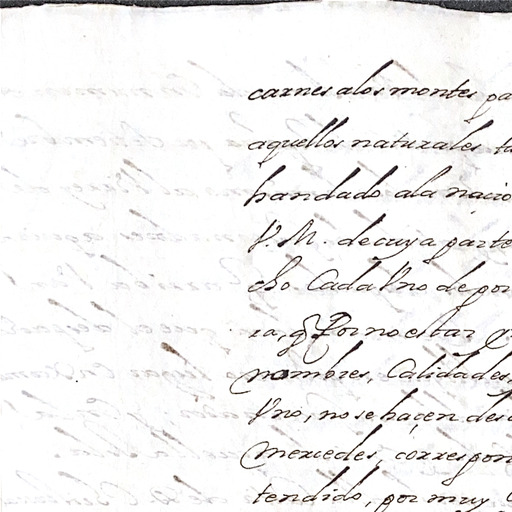 carnes alos montes pa
aquellos naturales ta
handado ala nacio
V. M. de cuya parte
cho Cada Vno de por
ra, q Por no estar
nombres, Calidades,
Vno, no se haçen des
mercedes, corrrespon
tendido, por muy